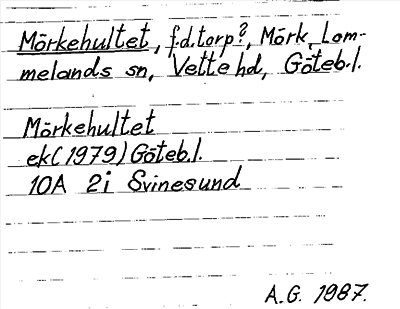 Mörkehultet, f.d.torp?, Mörk, Lom-
melands sn, Vette hd, Göteb.l.
Mörkehultet
ek(1979) Göteb.l.
10A 2i Svinesund
A.G. 1987.